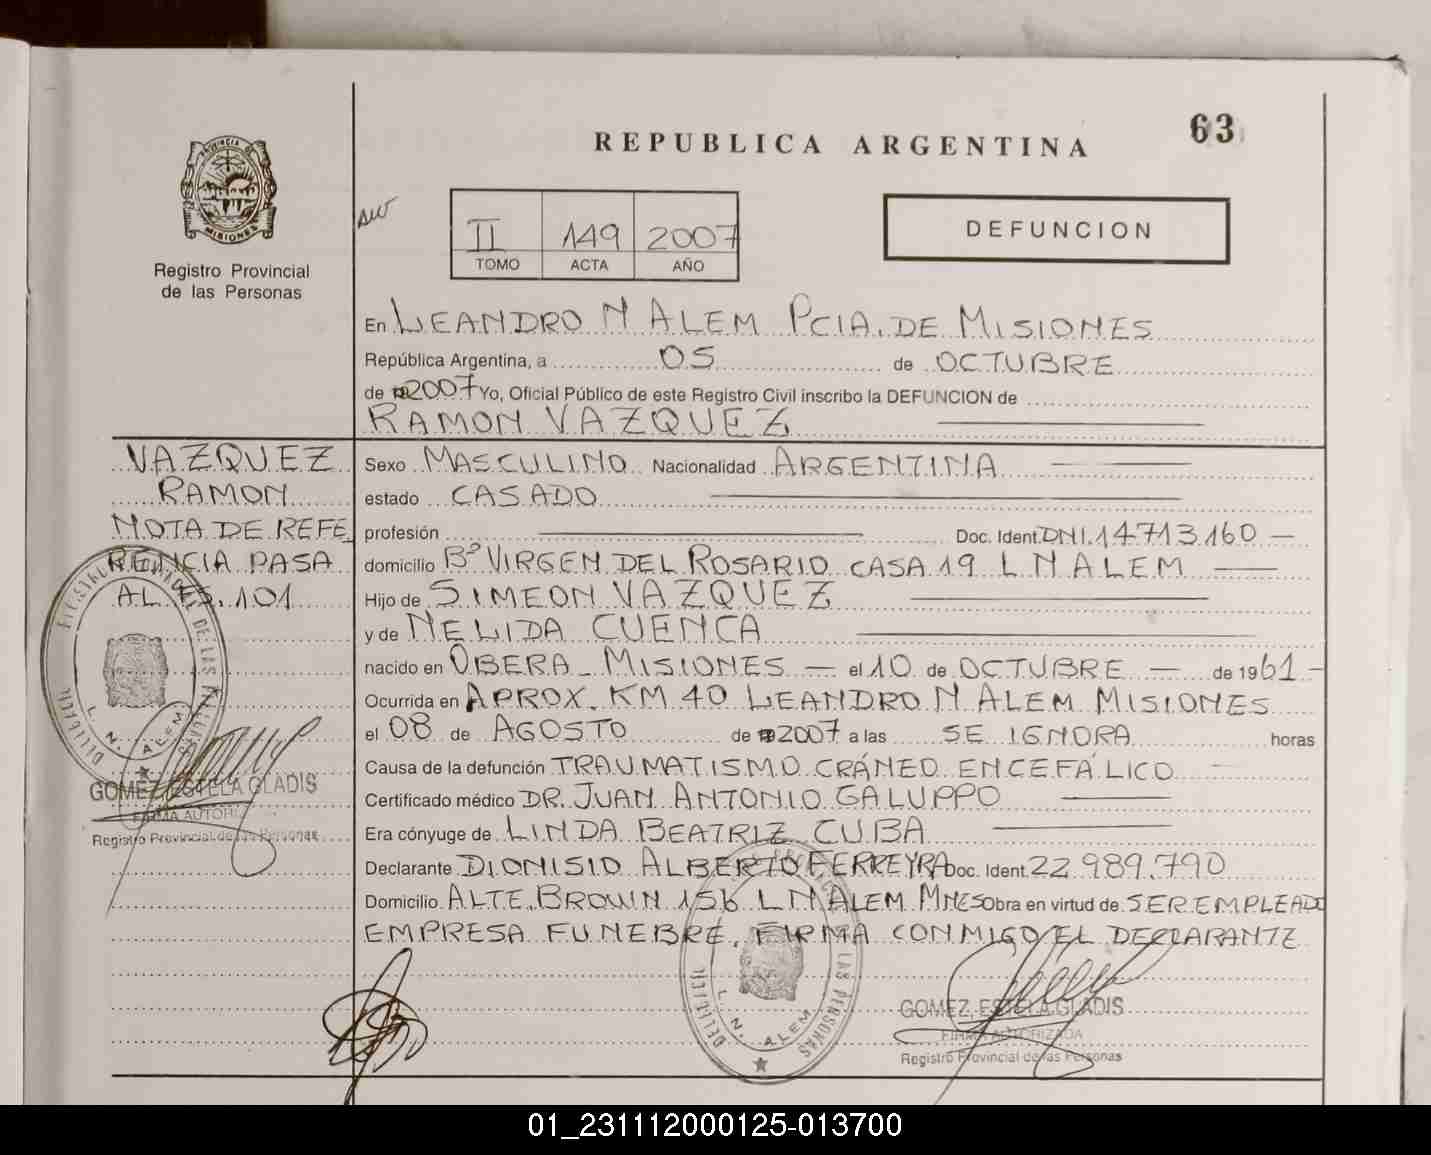 63
REPUBLICA ARGENTINA
PROVINCIA DE
MISIONES
Registro Provincial
de las Personas
II 149 2007
TOMO ACTA AÑO
DEFUNCION
En LEANDRO N ALEM PCIA. DE MISIONES
República Argentina, a 05 de OCTUBRE
de 2007 Yo, Oficial Público de este Registro Civil inscribo la DEFUNCION de
RAMON VAZQUEZ
VAZQUEZ
RAMON
NOTA DE REFE
RENCIA PASA
AL Fº. 101
Sexo MASCULINO Nacionalidad ARGENTINA
estado CASADO
profesión Doc. Ident. DNI.14.713.160 —
domicilio Bº VIRGEN DEL ROSARIO CASA 19 L N ALEM
Hijo de SIMEON VAZQUEZ
y de NELIDA CUENCA
nacido en OBERA - MISIONES — el 10 de OCTUBRE — de 1961 -
Ocurrida en APROX. KM 40 LEANDRO N ALEM MISIONES
el 08 de AGOSTO de 2007 a las SE IGNORA horas
Causa de la defunción TRAUMATISMO CRÁNEO ENCEFÁLICO
Certificado médico DR. JUAN ANTONIO GALUPPO
Era cónyuge de LINDA BEATRIZ CUBA
Declarante DIONISIO ALBERTO FERREYRA Doc. Ident. 22.989.790
Domicilio ALTE. BROWN 156 L N ALEM MNES Obra en virtud de SER EMPLEADO
EMPRESA FUNEBRE. FIRMA CONMIGO EL DECLARANTE
L. N. ALEM
GOMEZ ESTELA GLADIS
FIRMA AUTORI
Registro Provincial de las Personas
DE LAS PERSONAS
L. N. ALEM
GOMEZ, ESTELA GLADIS
FIRMA AUTORIZADA
Registro Provincial de las Personas
01_231112000125-013700